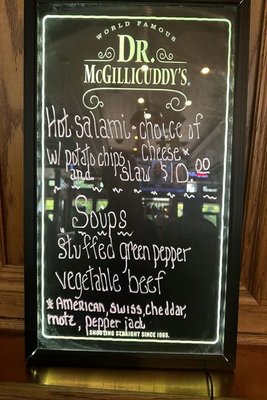 WORLD FAMOUS
DR.
McGILLICUDDY'S®
Hot salami: choice of
w/ potato chips cheese*
and slaw $10.00
Soups
Stuffed green pepper
vegetable beef
* American, swiss, cheddar,
motz, pepper jack
SHOOTING STRAIGHT SINCE 1865.